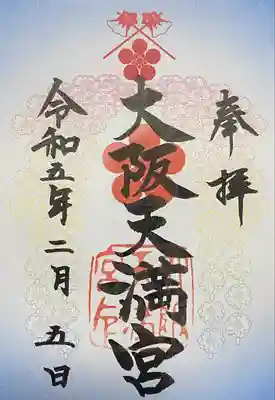 奉拝
大阪天満宮
令和五年二月五日